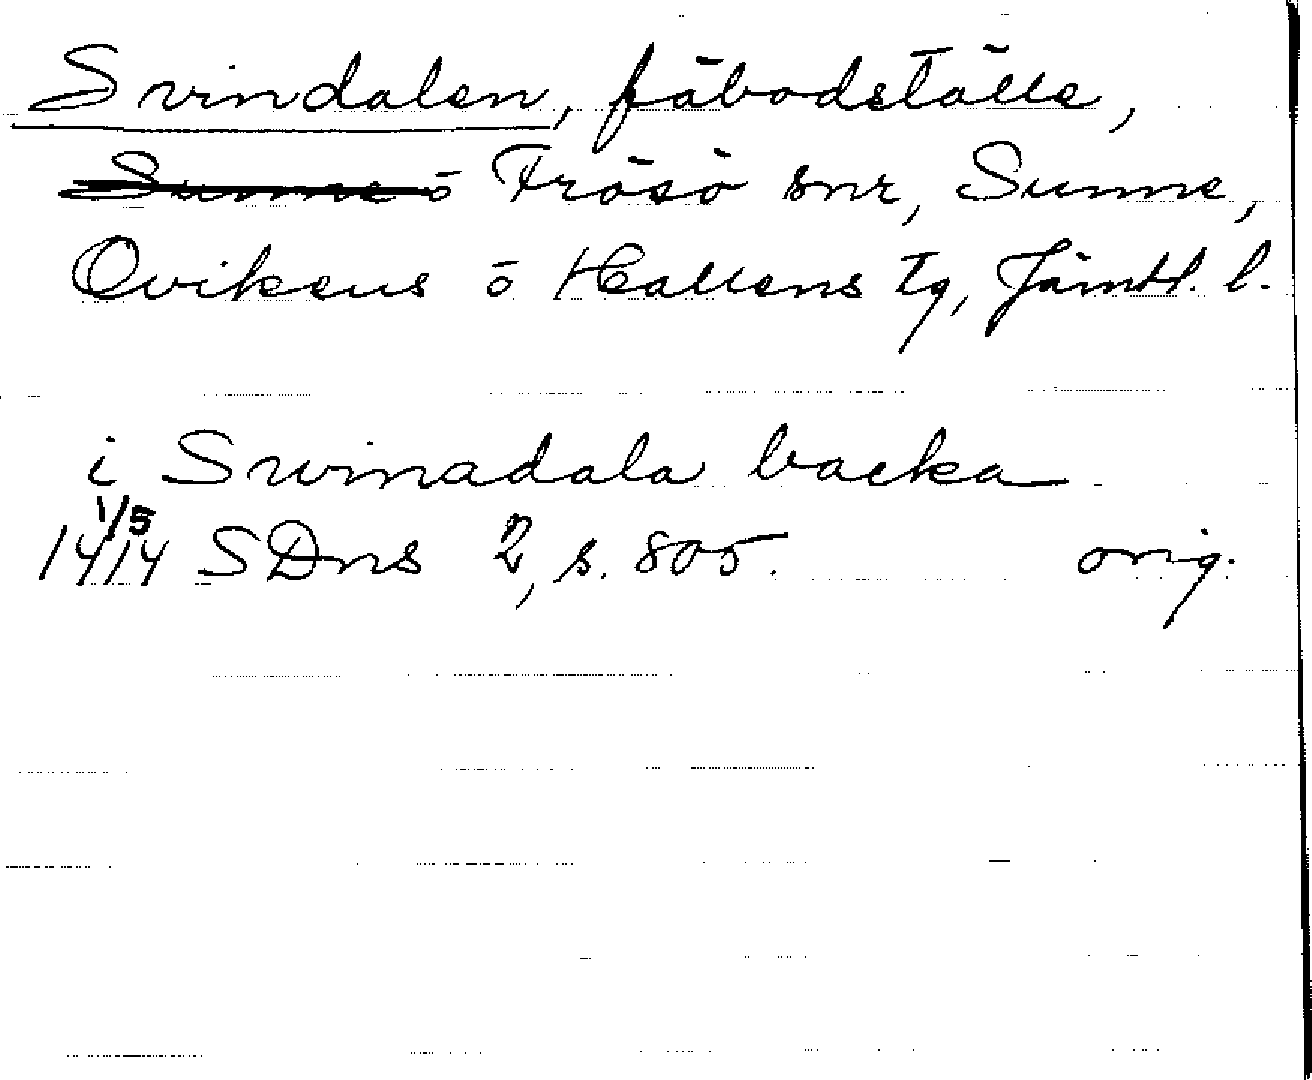 Svindalen, fäbodställe,
Sunne o Frösö snr, Sunne,
Ovikens o Hallens tg, Jämtl. l.
i Swinadala backa
1/5
1414 SDns 2, s. 805. orig.